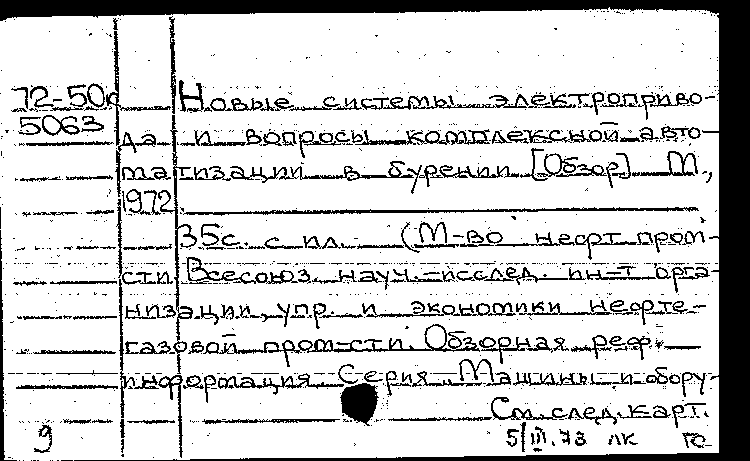 72-50к Новые системы электроприво-
5063 да и вопросы комплексной авто-
матизации в бурении [Обзор] М.,
1972.
35с. с ил. (М-во нефт. пром-
сти. Всесоюз. науч.-исслед. ин-т орга-
низации, упр. и экономики нефте-
газовой пром-сти. Обзорная реф.
информация. Серия „Машины и обору-
См. след. карт.
9 5/III.73 лк го